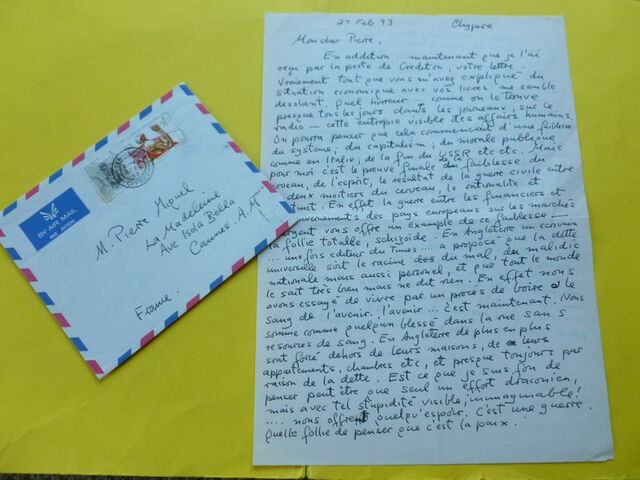 27 Feb 93 Chypre
Mon cher Pierre,
En addition ... maintenant que je l'ai
reçu par la poste de Crediton, votre lettre.
Vraiment tout que vous m'avez expliqué du
situation economique avec vos livres me semble
desolant. Quel horreur ... comme on le trouve
presque tous les jours dans les journeaux, sur le
radio — cette entropie visible des affairs humains.
On pourra penser que cela commencait d'une faiblesse
du systeme; du capitalism; du morale publique
comme en Italie; de la fin du USSR etc etc. Mais
pour moi c'est le preuve finale de la faiblesse du
cerveau, de l'esprit, le resultat de la guerre civile entre
deux moitiers du cerveau, le rationalité et
En effet la guerre entre les financiers et
gouvernements des pays européans sur les marchés
vous offre un example de ce faiblesse —
la follie totalle, schizoide. En Angleterre un ecrivain
... une fois editeur du Times ... a proposé que la dette
universelle soit le racine des du mal, du maladie
nationale mais aussi personel, et que tout le monde
le sait très bien mais ne dit rien. En effet nous
avons essayé de vivre par un proces de boire le
sang de l'avenir. L'avenir ... c'est maintenant. Nous
somme comme quelqun blessé dans la rue sans
resources de sang. En Angleterre de plus en plus
sont forcé dehors de leurs maisons, de leurs
appartements, chambres etc, et presque toujours par
raison de la dette. Est ce que je suis fou de
penser peut être que seul un effort draconien,
mais avec tel stupidité visible, inimaginable!
.... nous offrent quelqu'espoir. C'est une guerre.
Quelle follie de penser que c'est la paix.
BY AIR MAIL
PAR AVION
M. Pierre Minuel
La Madeleine
Ave Isola Bella
Cannes - A.M
France.